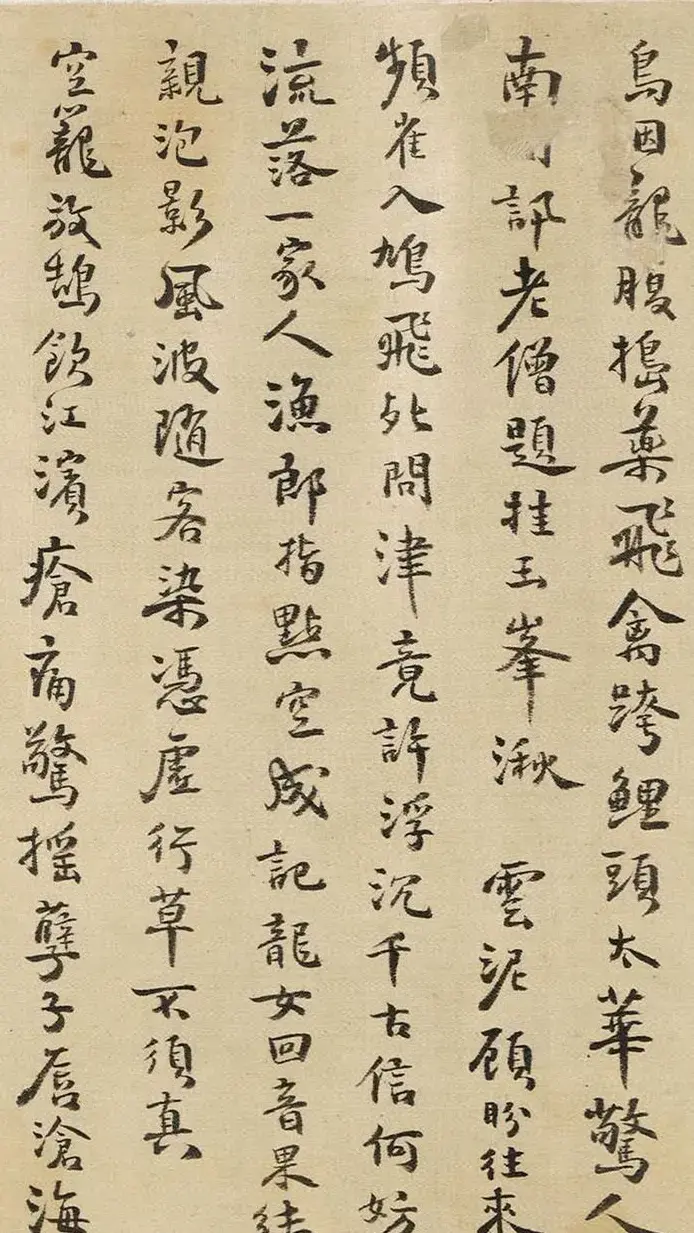 烏因龍腹搗藥飛禽跨鯉頭太華驚人
南訊老僧題挂玉峯湫 雲泥顧盼往來
頻雀入鳩飛此問津竟許浮沉千古信何妨
流落一家人漁郎指點空成記龍女回音果
親泡影風波隨客染憑虛行草不須真
空籠放鵠飲江濱瘡痛驚搖孽子唇滄海